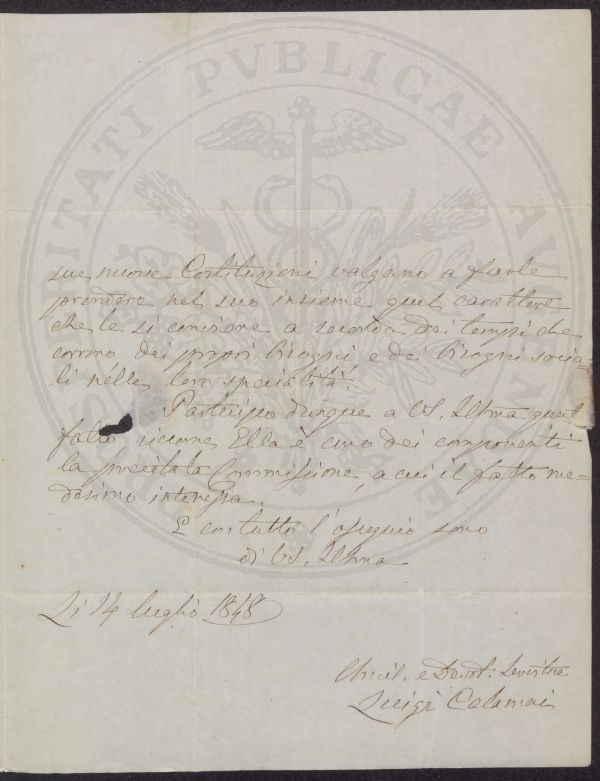 PROSPERITATI PVBLICAE AVGENDAE
sue nuove Costituzioni valgano a farle
prendere nel suo insieme quel carattere
che le si conviene a seconda dei tempi che
corrono dei propri bisogni e dei bisogni socia-
li nelle loro specialità.
Partecipo dunque a VS. Illma quest
fatto siccome Ella è uno dei componenti
la precitata Commissione, a cui il fatto me-
desimo interessa.
E con tutto l'ossequio sono
di VS. Illma
Li 14 luglio 1848
Umil. e Devot. Servitore
Luigi Calamai